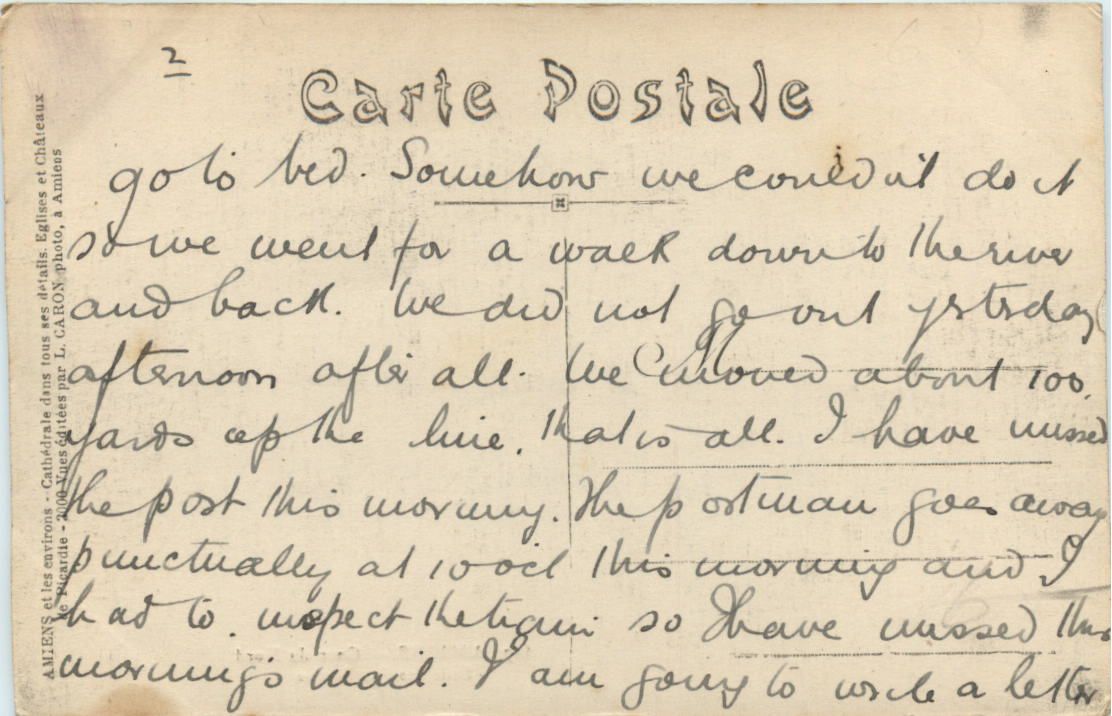 2
Carte Postale
go to bed. Somehow we couldn't do it
so we went for a walk down to the river
and back. We did not go out yesterday
afternoon after all. We moved about 100
yards up the line, that is all. I have missed
the post this morning. The postman goes away
punctually at 10 ocl this morning and I
had to inspect the train so I have missed this
mornings mail. I am going to write a letter
AMIENS et les environs - Cathédrale dans tous ses détails. Eglises et Châteaux
de Picardie - 2000 Vues éditées par L. CARON, photo, à Amiens